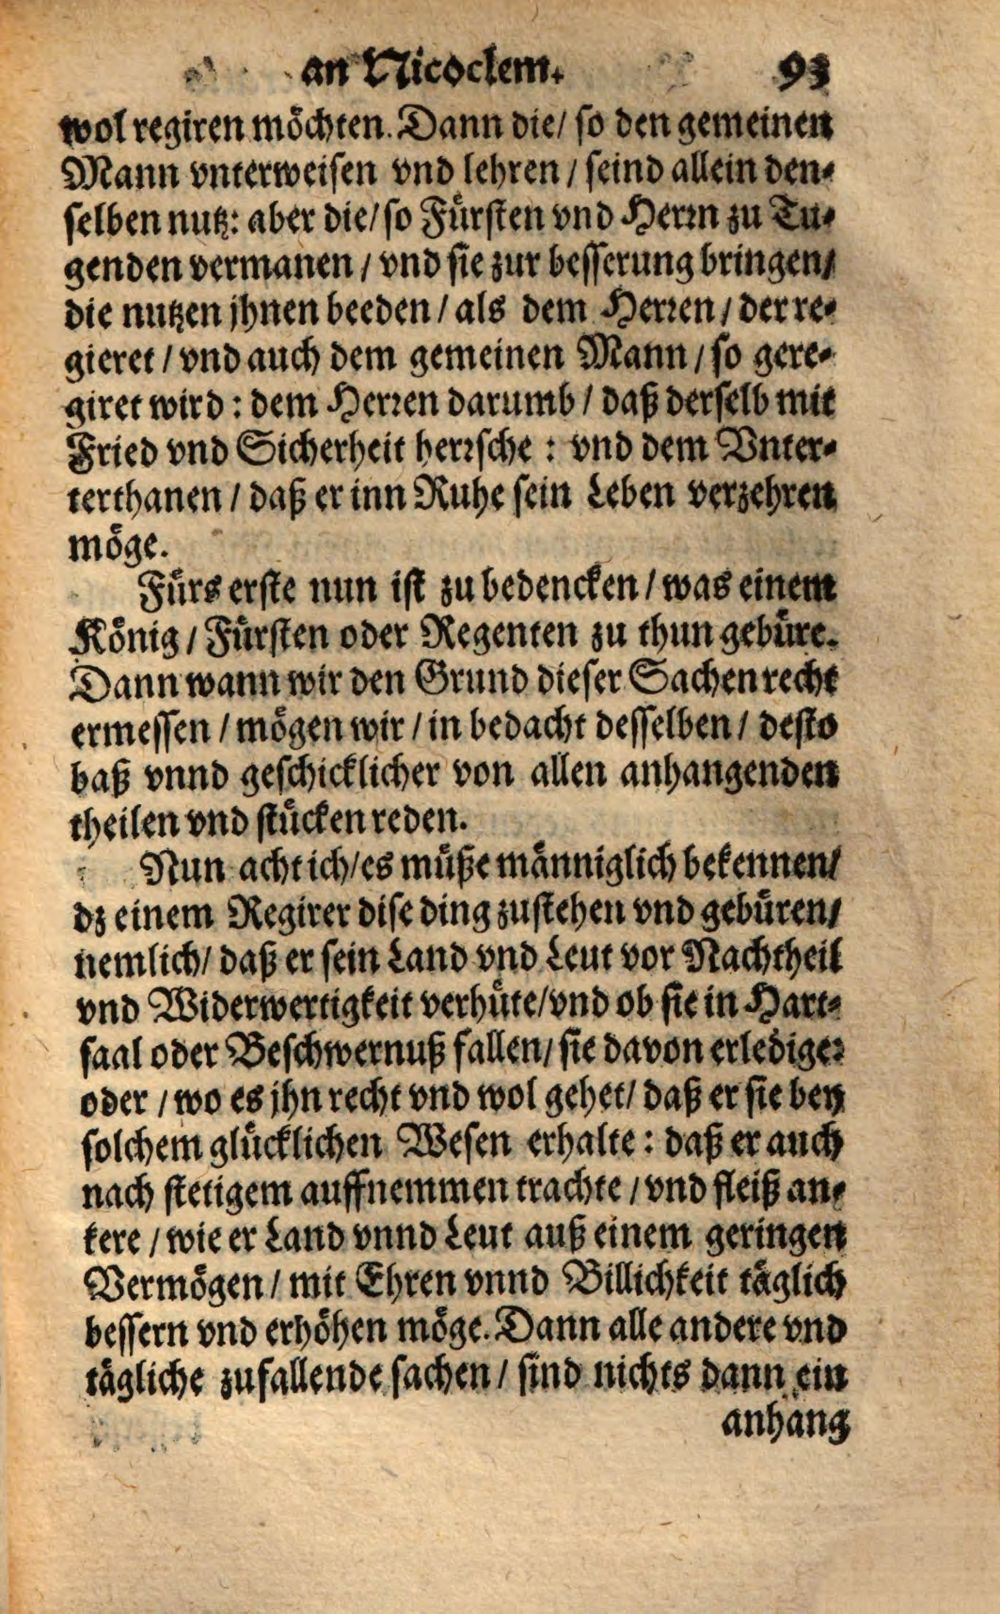 an Nicoclem. 93
wol regiren möchten. Dann die/ so den gemeinen
Mann vnterweisen vnd lehren / seind allein den-
selben nutz: aber die/ so Fürsten vnd Herrn zu Tu-
genden vermanen / vnd sie zur besserung bringen/
die nutzen jhnen beeden / als dem Herren / der re-
gieret / vnd auch dem gemeinen Mann / so gere-
giret wird : dem Herren darumb / daß derselb mit
Fried vnd Sicherheit herrsche : vnd dem Vnter-
terthanen / daß er inn Ruhe sein Leben verzehren
möge.
Fürs erste nun ist zu bedencken / was einem
König / Fürsten oder Regenten zu thun gebüre.
Dann wann wir den Grund dieser Sachen recht
ermessen / mögen wir / in bedacht desselben / desto
baß vnnd geschicklicher von allen anhangenden
theilen vnd stücken reden.
Nun acht ich/ es müße männiglich bekennen/
dz einem Regirer dise ding zustehen vnd gebüren/
nemlich/ daß er sein Land vnd Leut vor Nachtheil
vnd Widerwertigkeit verhüte/ vnd ob sie in Hart-
saal oder Beschwernuß fallen/ sie davon erledige:
oder / wo es jhn recht vnd wol gehet/ daß er sie bey
solchem glücklichen Wesen erhalte : daß er auch
nach stetigem auffnemmen trachte / vnd fleiß an-
kere / wie er Land vnnd Leut auß einem geringen
Vermögen / mit Ehren vnnd Billichkeit täglich
bessern vnd erhöhen möge. Dann alle andere vnd
tägliche zufallende sachen / sind nichts dann ein
anhang